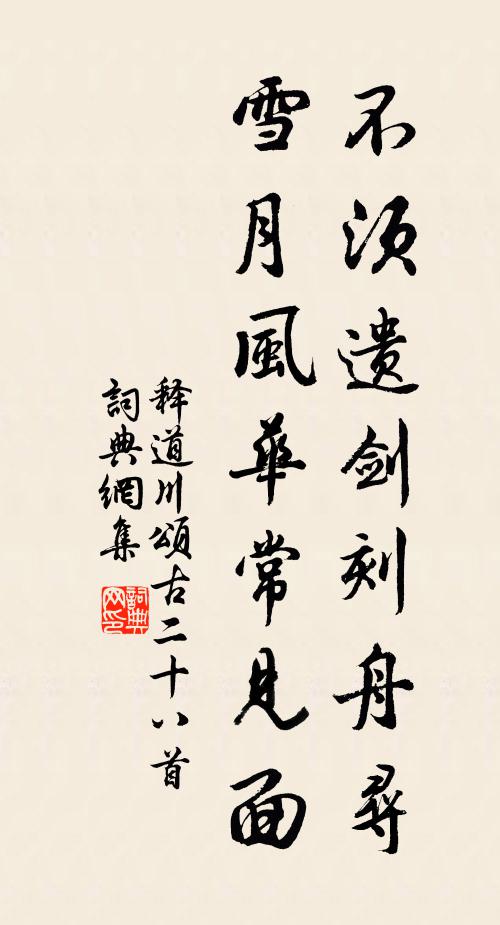 不須遺劍刻舟尋
雪月風華常見面
释道川頌古二十八首
詞典網集
詞典网印